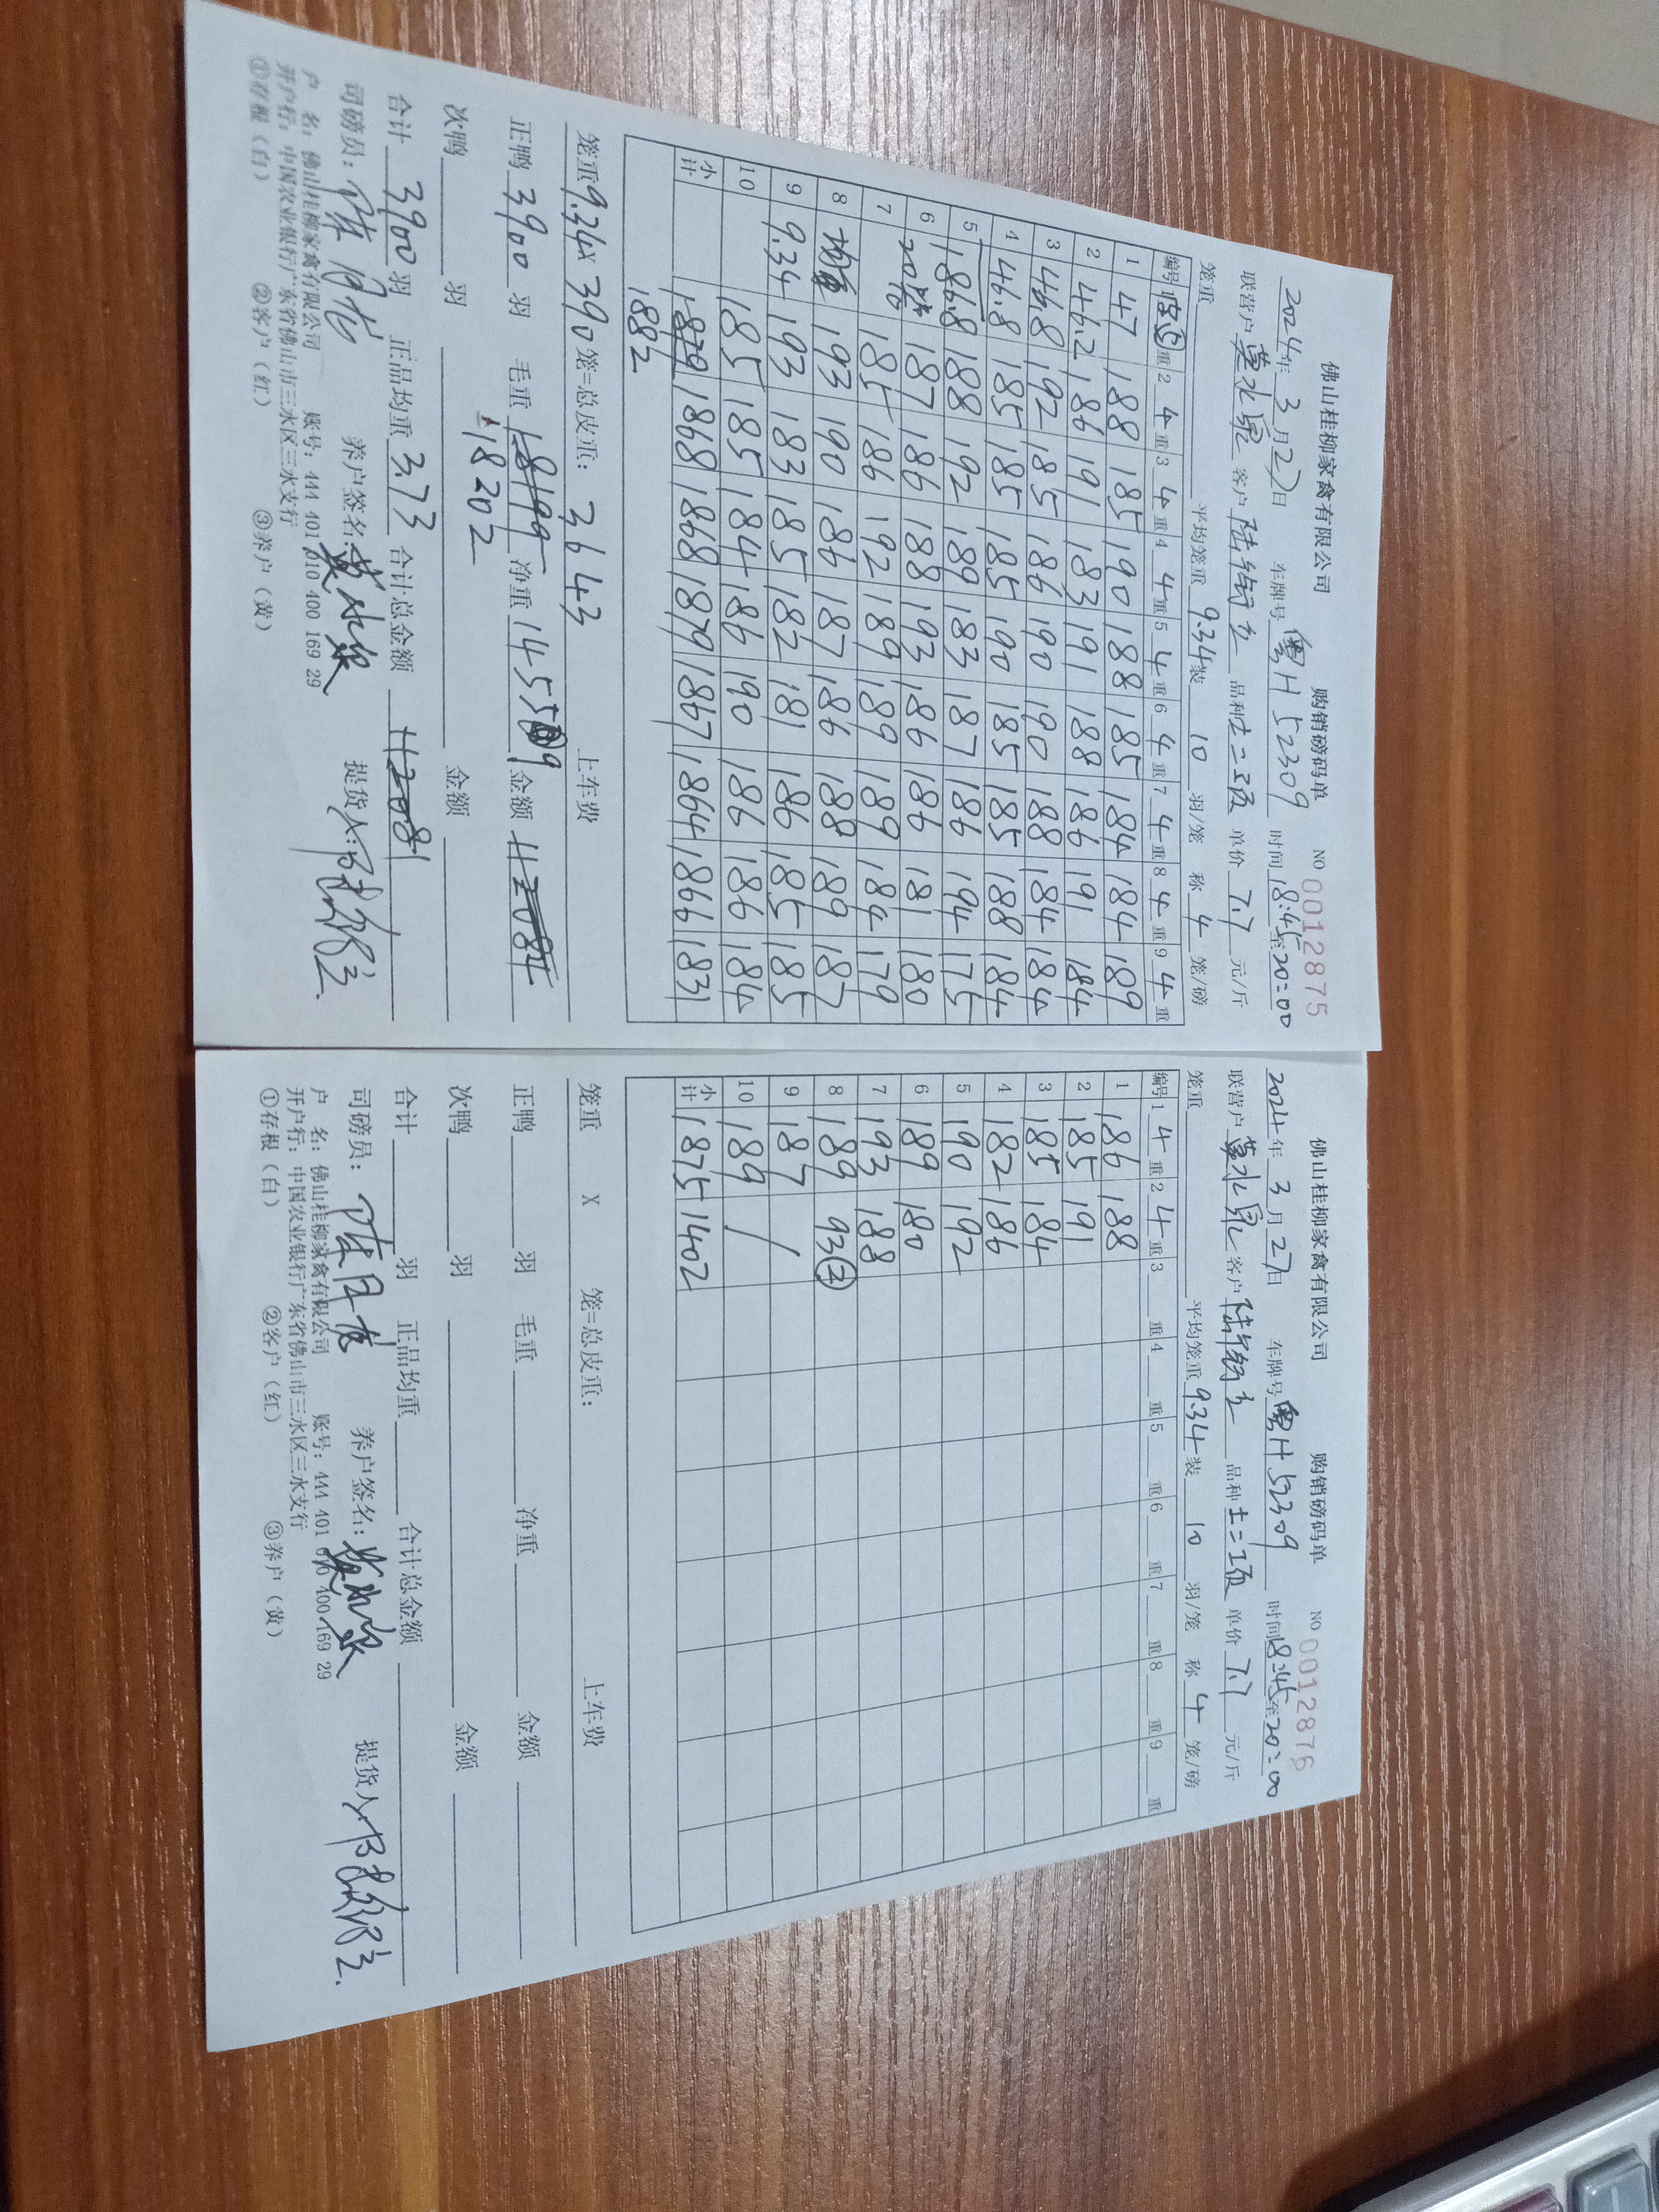 佛山桂柳家禽有限公司 购销磅码单 NO 0012875
2024年3月27日 车牌号 粤H52309 时间 18:45至20:00
联营户 客户 品种 土二 单价 7.7 元/斤
笼重 平均笼重 9.34 装 10 羽/笼 称 4 笼/磅
编号 1 重 2 4 重 3 4 重 4 4 重 5 4 重 6 4 重 7 4 重 8 4 重 9 4 重
1 47 188 185 190 188 185 184 184 189
2 46.2 186 191 183 191 188 186 191 184
3 46.8 192 185 186 190 190 188 184 184
4 46.8 185 185 185 190 185 185 188 184
5 186.8 188 192 189 183 187 186 194 175
6 20 187 186 188 193 186 186 181 180
7 185 186 192 189 189 189 184 179
8 193 190 186 187 186 188 189 187
9 9.34 193 183 185 182 181 186 185 185
10 185 185 184 186 190 186 186 184
小计 1879 1868 1868 1879 1867 1864 1866 1831
1882
笼重 9.34 X 390 笼=总皮重: 3643 上车费
正鸭 3900 羽 毛重 18199 净重 14559 金额
18202
次鸭 羽 金额
合计 3900 羽 正品均重 3.73 合计总金额 112081
司磅员: 养户签名: 提货人:
户 名: 佛山桂柳家禽有限公司 账号: 444 401 010 400 169 29
开户行: 中国农业银行广东省佛山市三水区三水支行
①存根(白) ②客户(红) ③养户(黄)
佛山桂柳家禽有限公司 购销磅码单 NO 0012876
2024年3月27日 车牌号 粤H52309 时间 18:45至20:00
联营户 客户 品种 土二 单价 7.7 元/斤
笼重 平均笼重 9.34 装 10 羽/笼 称 4 笼/磅
编号 1 4 重 2 4 重 3 重 4 重 5 重 6 重 7 重 8 重 9 重
1 186 188
2 185 191
3 185 184
4 182 186
5 190 192
6 189 180
7 193 188
8 189 93 ②
9 187 /
10 189 /
小计 1875 1402
笼重 X 笼=总皮重: 上车费
正鸭 羽 毛重 净重 金额
次鸭 羽 金额
合计 羽 正品均重 合计总金额
司磅员: 养户签名: 提货人
户 名: 佛山桂柳家禽有限公司 账号: 444 401 010 400 169 29
开户行: 中国农业银行广东省佛山市三水区三水支行
①存根(白) ②客户(红) ③养户(黄)